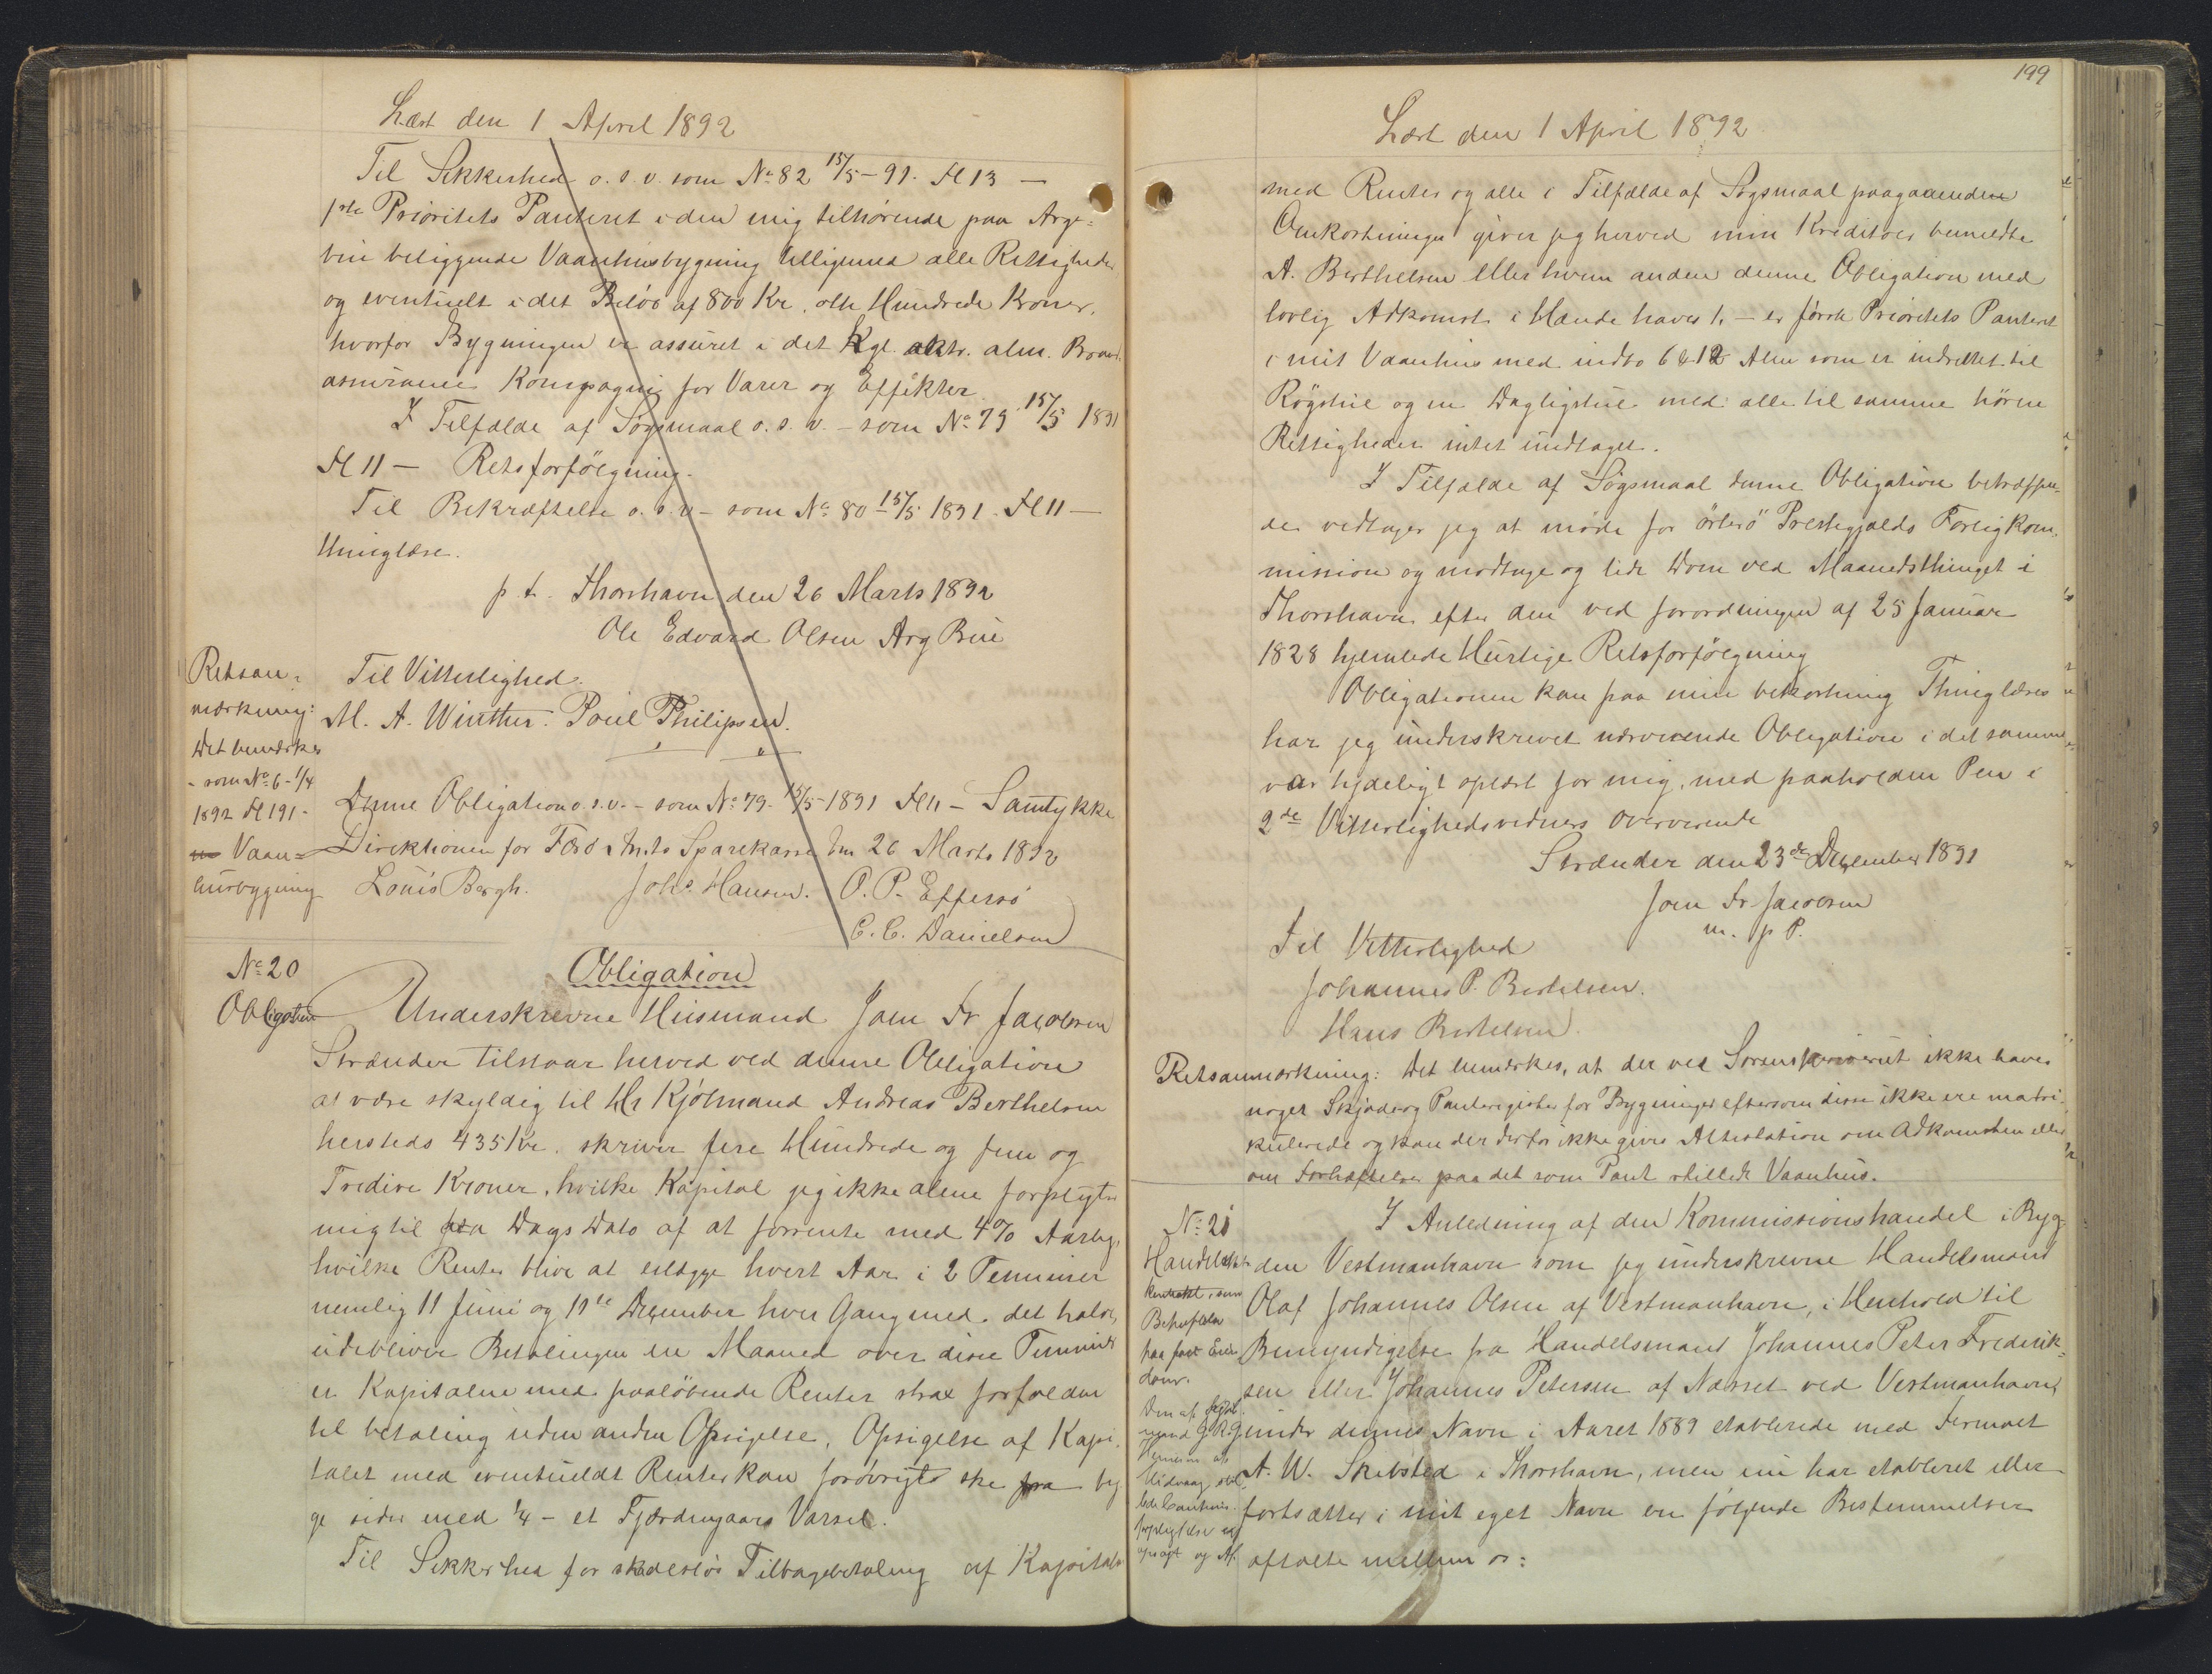 Læst den 1 April 1892
Til Sikkerhed o. s. v. som No 82 15/5 - 91. Fl 13 —
1ste Prioritets Panteret i den mig tilhørende paa Arge-
bøe beliggende Vaanhusbygning tilligemed alle Rettigheder
og eventuelt i det Beløb af 800 Kr. otte Hundrede Kroner,
hvorfor Bygningen er assureret i det Kgl. oktr. alm. Brand-
assurance Kompagni for Varer og Effekter.
I Tilfælde af Søgsmaal o. s. v. - som No 79 15/5 1891
Fl 11 — Retsforfölgning.
Til Bekræftelse o. s. v - som No 80 15/5 1891. Fl 11 —
thinglæse.
p t. Thorshavn den 26 Marts 1892
Ole Edvard Olsen Arg Böe
Til Vitterlighed.
M. A. Winther. Poul Philipsen.
Retsan-
mærkning:
Det bemærkes
- som No 6 - 1/4
1892 Fl 191 -
Vaan-
husbygning
Denne Obligation o. s. v. - som No 79. 15/5 - 1891 Fl 11 - Samtykke
Direktionen for Færø Amts Sparekasse den 26 Marts 1892
Louis Bergh. Johs. Hansen. O. P. Effersö
C. C. Danielsen
No 20
Obligation
Obligation
Underskrevne Huusmand Joen Fr Jacobsen
Strænder tilstaar herved ved denne Obligation
at være skyldig til Hr Kjöbmand Andreas Berthelsen
hersteds 435 Kr. skriver fire Hundrede og fem og
Tredive Kroner, hvilke Kapital jeg ikke alene forpligter
mig til fra Dags Dato af at forrente med 4% Aarlig,
hvilke Renter blive at erlægge hvert Aar i 2 Terminer
nemlig 11 Juni og 11te December hver Gang med det halve,
udebliver Betalingen en Maaned over disse Terminer
er Kapitalen med paalöbende Renter strax forfalden
til betaling uden anden Opsigelse. Opsigelse af Kapi-
talet med eventuelt Renter kan forövrigt ske fra beg
ge sider med 1/4 - et Fjerdingaars Varsel.
Til Sikkerhed for skadeslös Tilbagebetaling af Kapitalen
199
Læst den 1 April 1892
med Renter og alle i Tilfælde af Søgsmaal paagaaende
Omkostninger giver jeg herved min Kreditor bemeldte
A. Berthelsen eller hvem anden denne Obligation med
lovlig Adkomst i Hænde haves 1. — er første Prioritets Panteret
i mit Vaanhus med indbo 6 & 12 Alen som er indrettet til
Røgstue og en Dagligstue med alle til samme hören
Rettigheder intet undtaget.
I Tilfælde af Søgsmaal denne Obligation betræffen-
de vedtager jeg at møde for örterö Prestegjælds Forligkom-
mission og modtage og lide Dom ved Maanedsthinget i
Thorshavn efter den ved forordningen af 25 Januar
1828 hjemlede Hurtige Retsforfölgning
Obligationen kan paa min bekostning Thinglæses
har jeg underskrevet nærværende Obligation i det samme
var tydeligt oplæst for mig, med paaholden Pen i
2de Vitterlighedsvidners overværende
Strænder den 23de December 1891
Joen Fr Jacobsen
m. p P.
Til Vitterlighed
Johannes P. Bertelsen.
Hans Bertelsen.
Retsanmærkning: Det bemærkes, at der ved Sorenskriveriet ikke haves
noget Skjøde og Panteregister for Bygninger eftersom disse ikke ere matri-
kulerede og kan der derfor ikke gives Attestation om Adkomsten eller
om Forhæftelser paa det som Pant stillede Vaanhus.
No 21
Handels
kontrakt, som
Behæftelse
paa fast Eien-
dom.
I Anledning af den Kommissionshandel i Byg-
den Vestmanhavn som jeg underskrevne Handelsmand
Olaf Johannes Olsen af Vestmanhavn, i Henhold til
Bemyndigelse fra Handelsmand Johannes Peter Frederik-
sen eller Johannes Petersen af Næsset ved Vestmanhavn
under dennes Navn i Aaret 1889 etablerede med Firmaet
A. W. Skibsted i Thorshavn, men nu har etableret eller
fortsætter i mit eget Navn ere følgende Bestemmelser
aftalte mellem os: